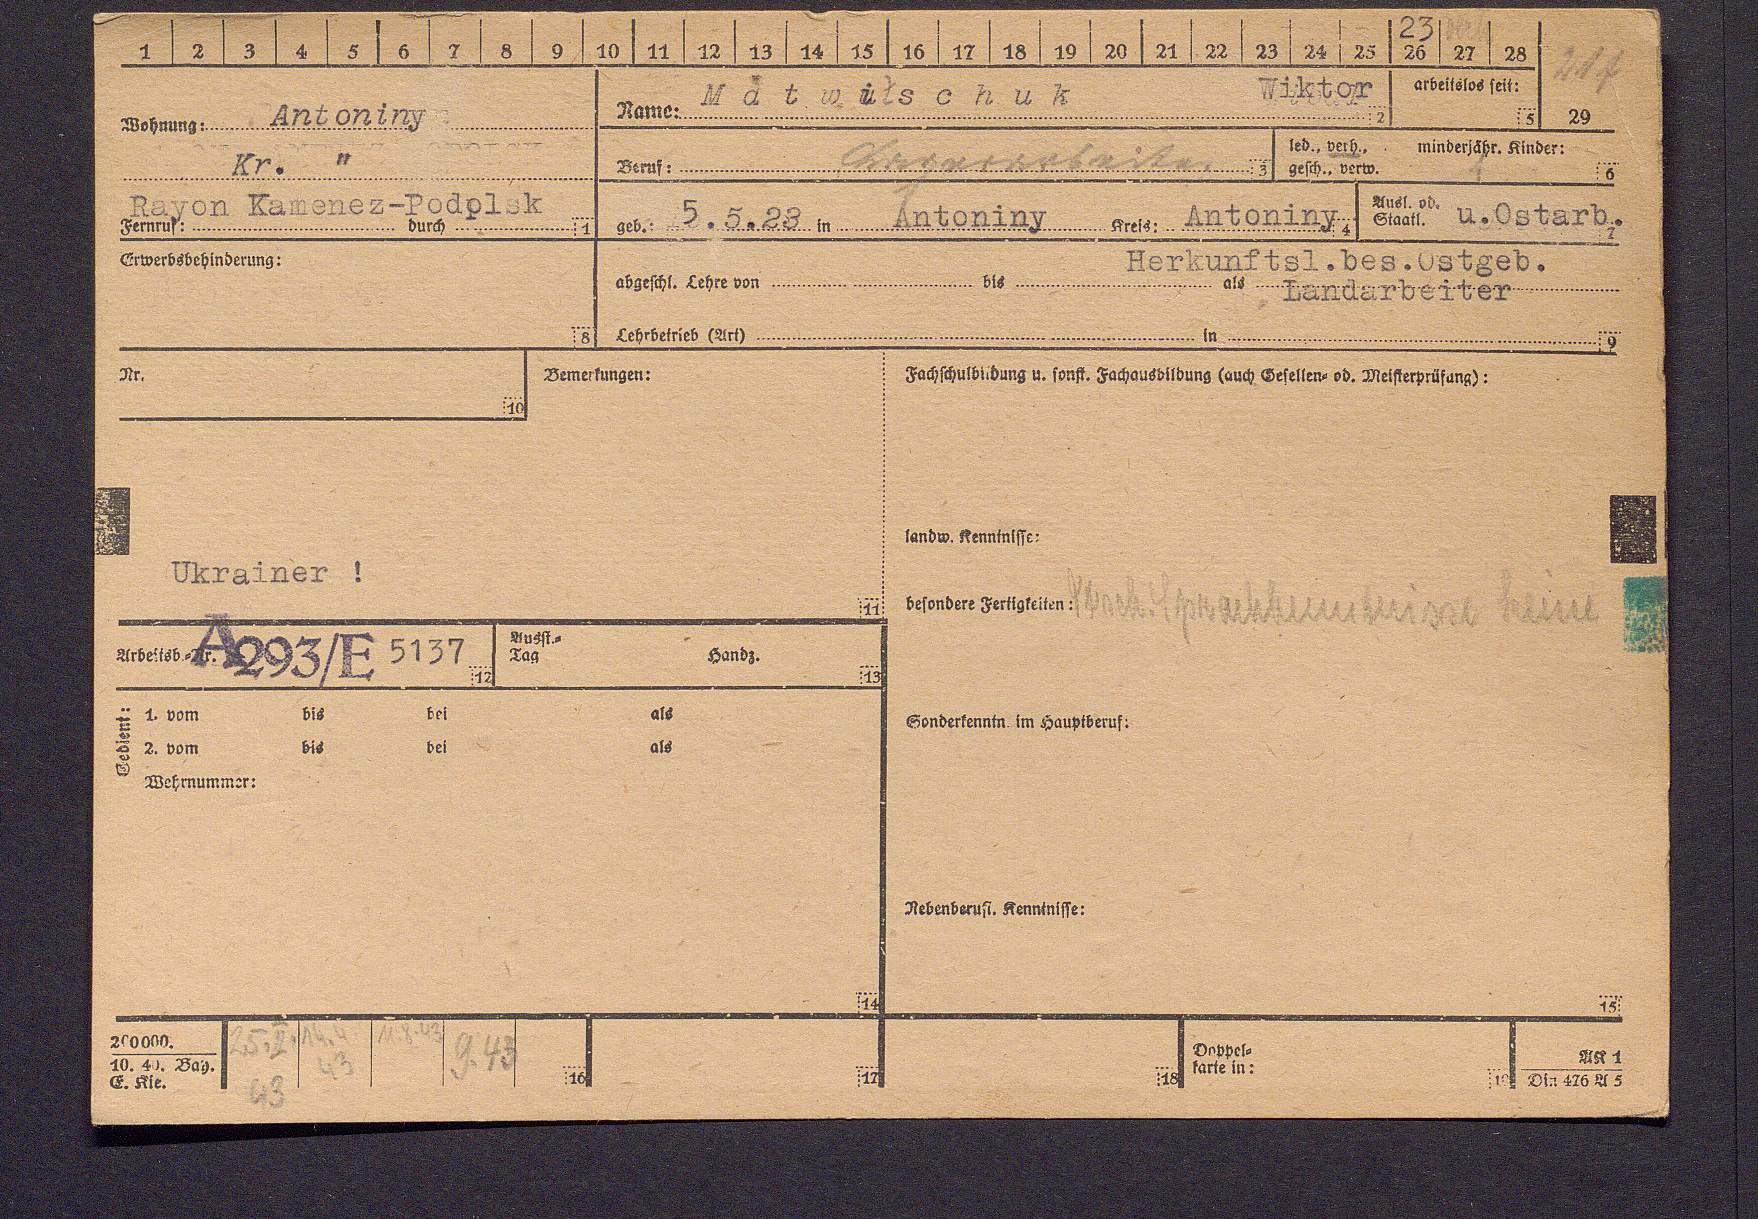 23
1 2 3 4 5 6 7 8 9 10 11 12 13 14 15 16 17 18 19 20 21 22 23 24 25 26 27 28
Wohnung: Antoniny
Kr. "
Rayon Kamenez-Podolsk
Fernruf: durch 1
Name: Matwischuk Wiktor 2
arbeitslos seit: 5
29
Beruf: 3
led., verh., gesch., verw.
minderjähr. Kinder: 6
geb.: 5.5.23 in Antoniny Kreis: Antoniny 4
Ausl. od. Staatl. u.Ostarb. 7
Erwerbsbehinderung:
8
Herkunftsl.bes.Ostgeb.
abgeschl. Lehre von bis als Landarbeiter
Lehrbetrieb (Art) in 9
Nr.
10
Bemerkungen:
Fachschulbildung u. sonst. Fachausbildung (auch Gesellen- od. Meisterprüfung):
landw. Kenntnisse:
Ukrainer !
11
besondere Fertigkeiten: Sprachkenntnisse keine
Arbeitsb.-Nr. A293/E 5137 12
Ausst.-Tag Handz. 13
Gedient:
1. vom bis bei als
2. vom bis bei als
Wehrnummer:
Sonderkenntn. im Hauptberuf:
Nebenberufl. Kenntnisse:
14
15
200000.
10. 40. Bay.
E. Kie.
25.II.43
14.4.43
11.8.43
9.43
16
17
18
Doppelkarte in:
19
AK 1
Din 476 A 5